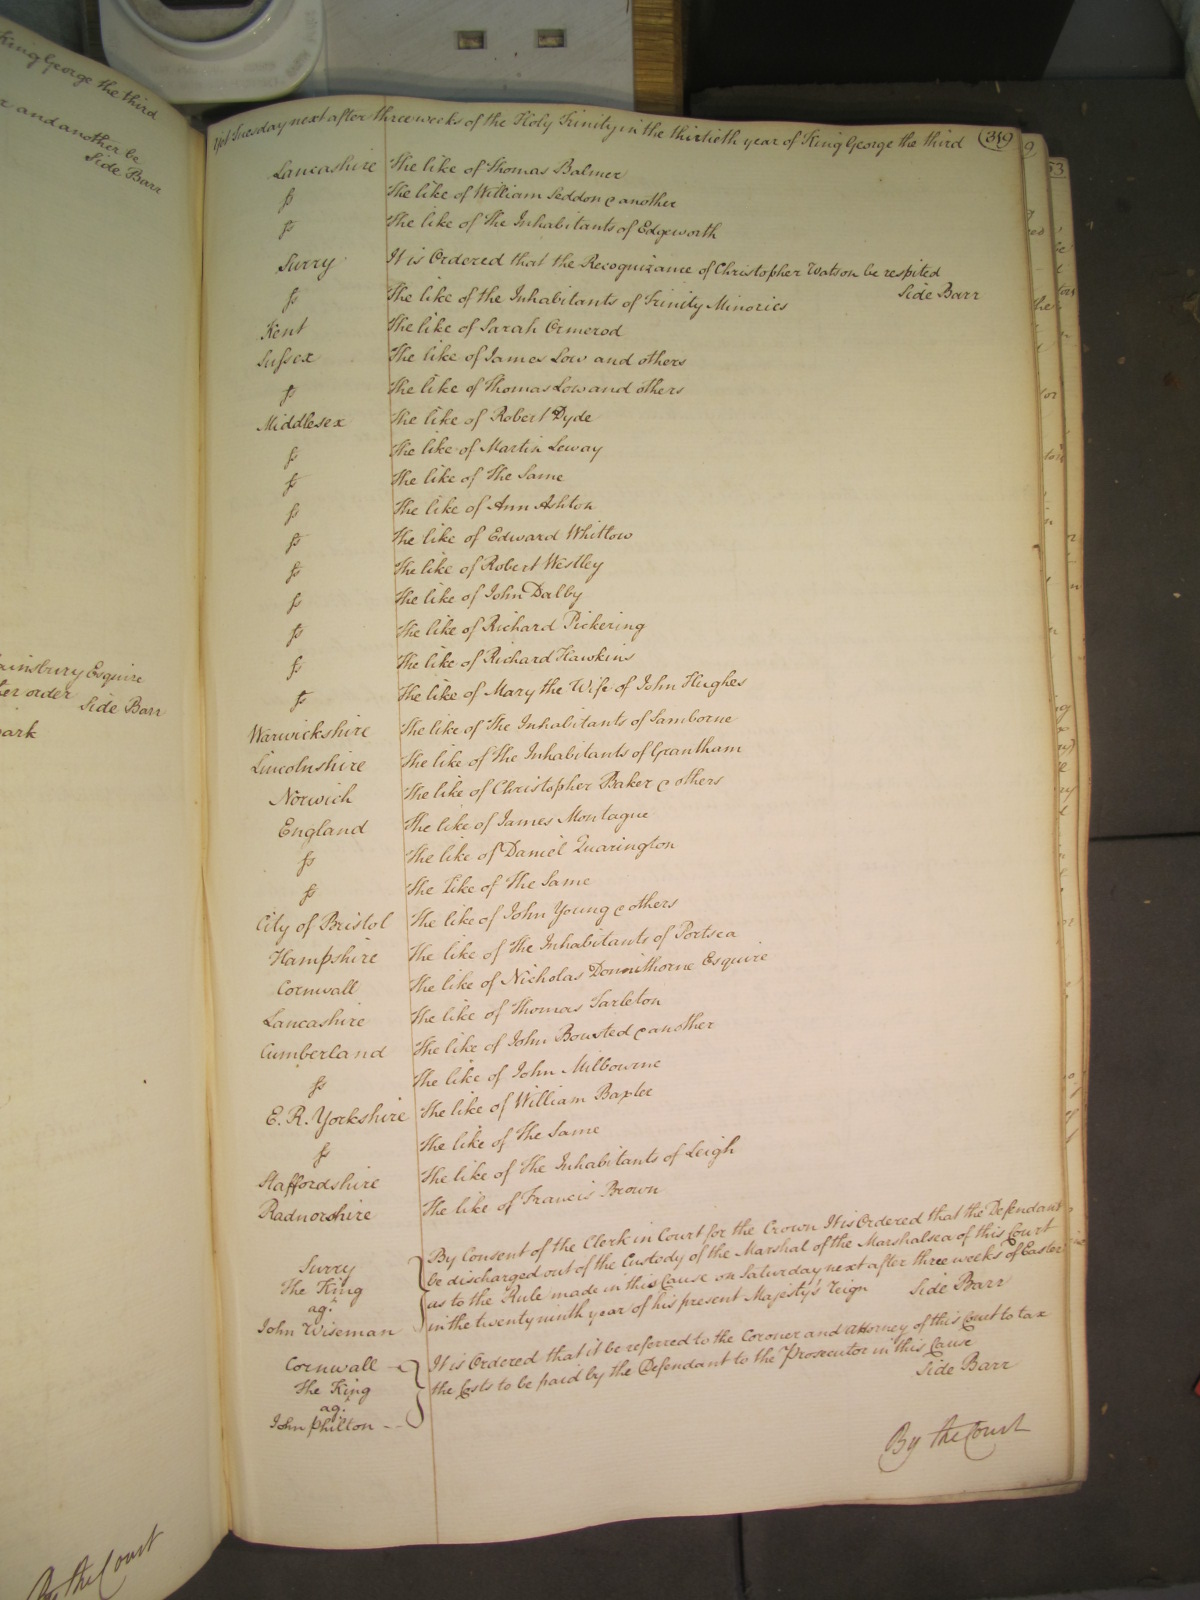 King George the third
and another be
Side Barr
ainsbury Esquire
ter order
Side Barr
ark
By the Court
Yet Tuesday next after three weeks of the Holy Trinity in the thirtieth year of King George the third (349)
Lancashire The like of Thomas Balmer
ss The like of William Seddon & another
ss The like of The Inhabitants of Edgeworth
Surry It is Ordered that the Recognizame of Christopher Watson be respited
Side Barr
ss The like of the Inhabitants of Trinity Minories
Kent The like of Sarah Ormerod
Sussex The like of James Low and others
ss The like of Thomas Low and others
Middlesex The like of Robert Dyde
ss The like of Martin Leway
ss The like of The Same
ss The like of Ann Ashton
ss The like of Edward Whitlow
ss The like of Robert Westley
ss The like of John Dalby
ss The like of Richard Pickering
ss The like of Richard Hawkins
ss The like of Mary the Wife of John Hughes
Warwickshire The like of The Inhabitants of Samborne
Lincolnshire The like of The Inhabitants of Grantham
Norwich The like of Christopher Baker & others
England The like of James Montague
ss The like of Daniel Quarington
ss The like of The Same
City of Bristol The like of John Young & others
Hampshire The like of The Inhabitants of Portsea
Cornwall The like of Nicholas Donnithorne Esquire
Lancashire The like of Thomas Tarleton
Cumberland The like of John Bousted & another
ss The like of John Milbourne
E. R. Yorkshire The like of William Baxter
ss The like of The Same
Staffordshire The like of The Inhabitants of Leigh
Radnorshire The like of Francis Brown
Surry By Consent of the Clerk in Court for the Crown It is Ordered that the Defendant
The King be discharged out of the Custody of the Marshal of the Marshalsea of this Court
agt as to the Rule made in this Cause on Saturday next after three weeks of Easter
John Wiseman in the twenty ninth year of his present Majesty's Reign Side Barr
Cornwall It is Ordered that it be referred to the Coroner and Attorney of this Court to tax
The King the Costs to be paid by the Defendant to the Prosecutor in this Cause
agt Side Barr
John Philton
By the Court